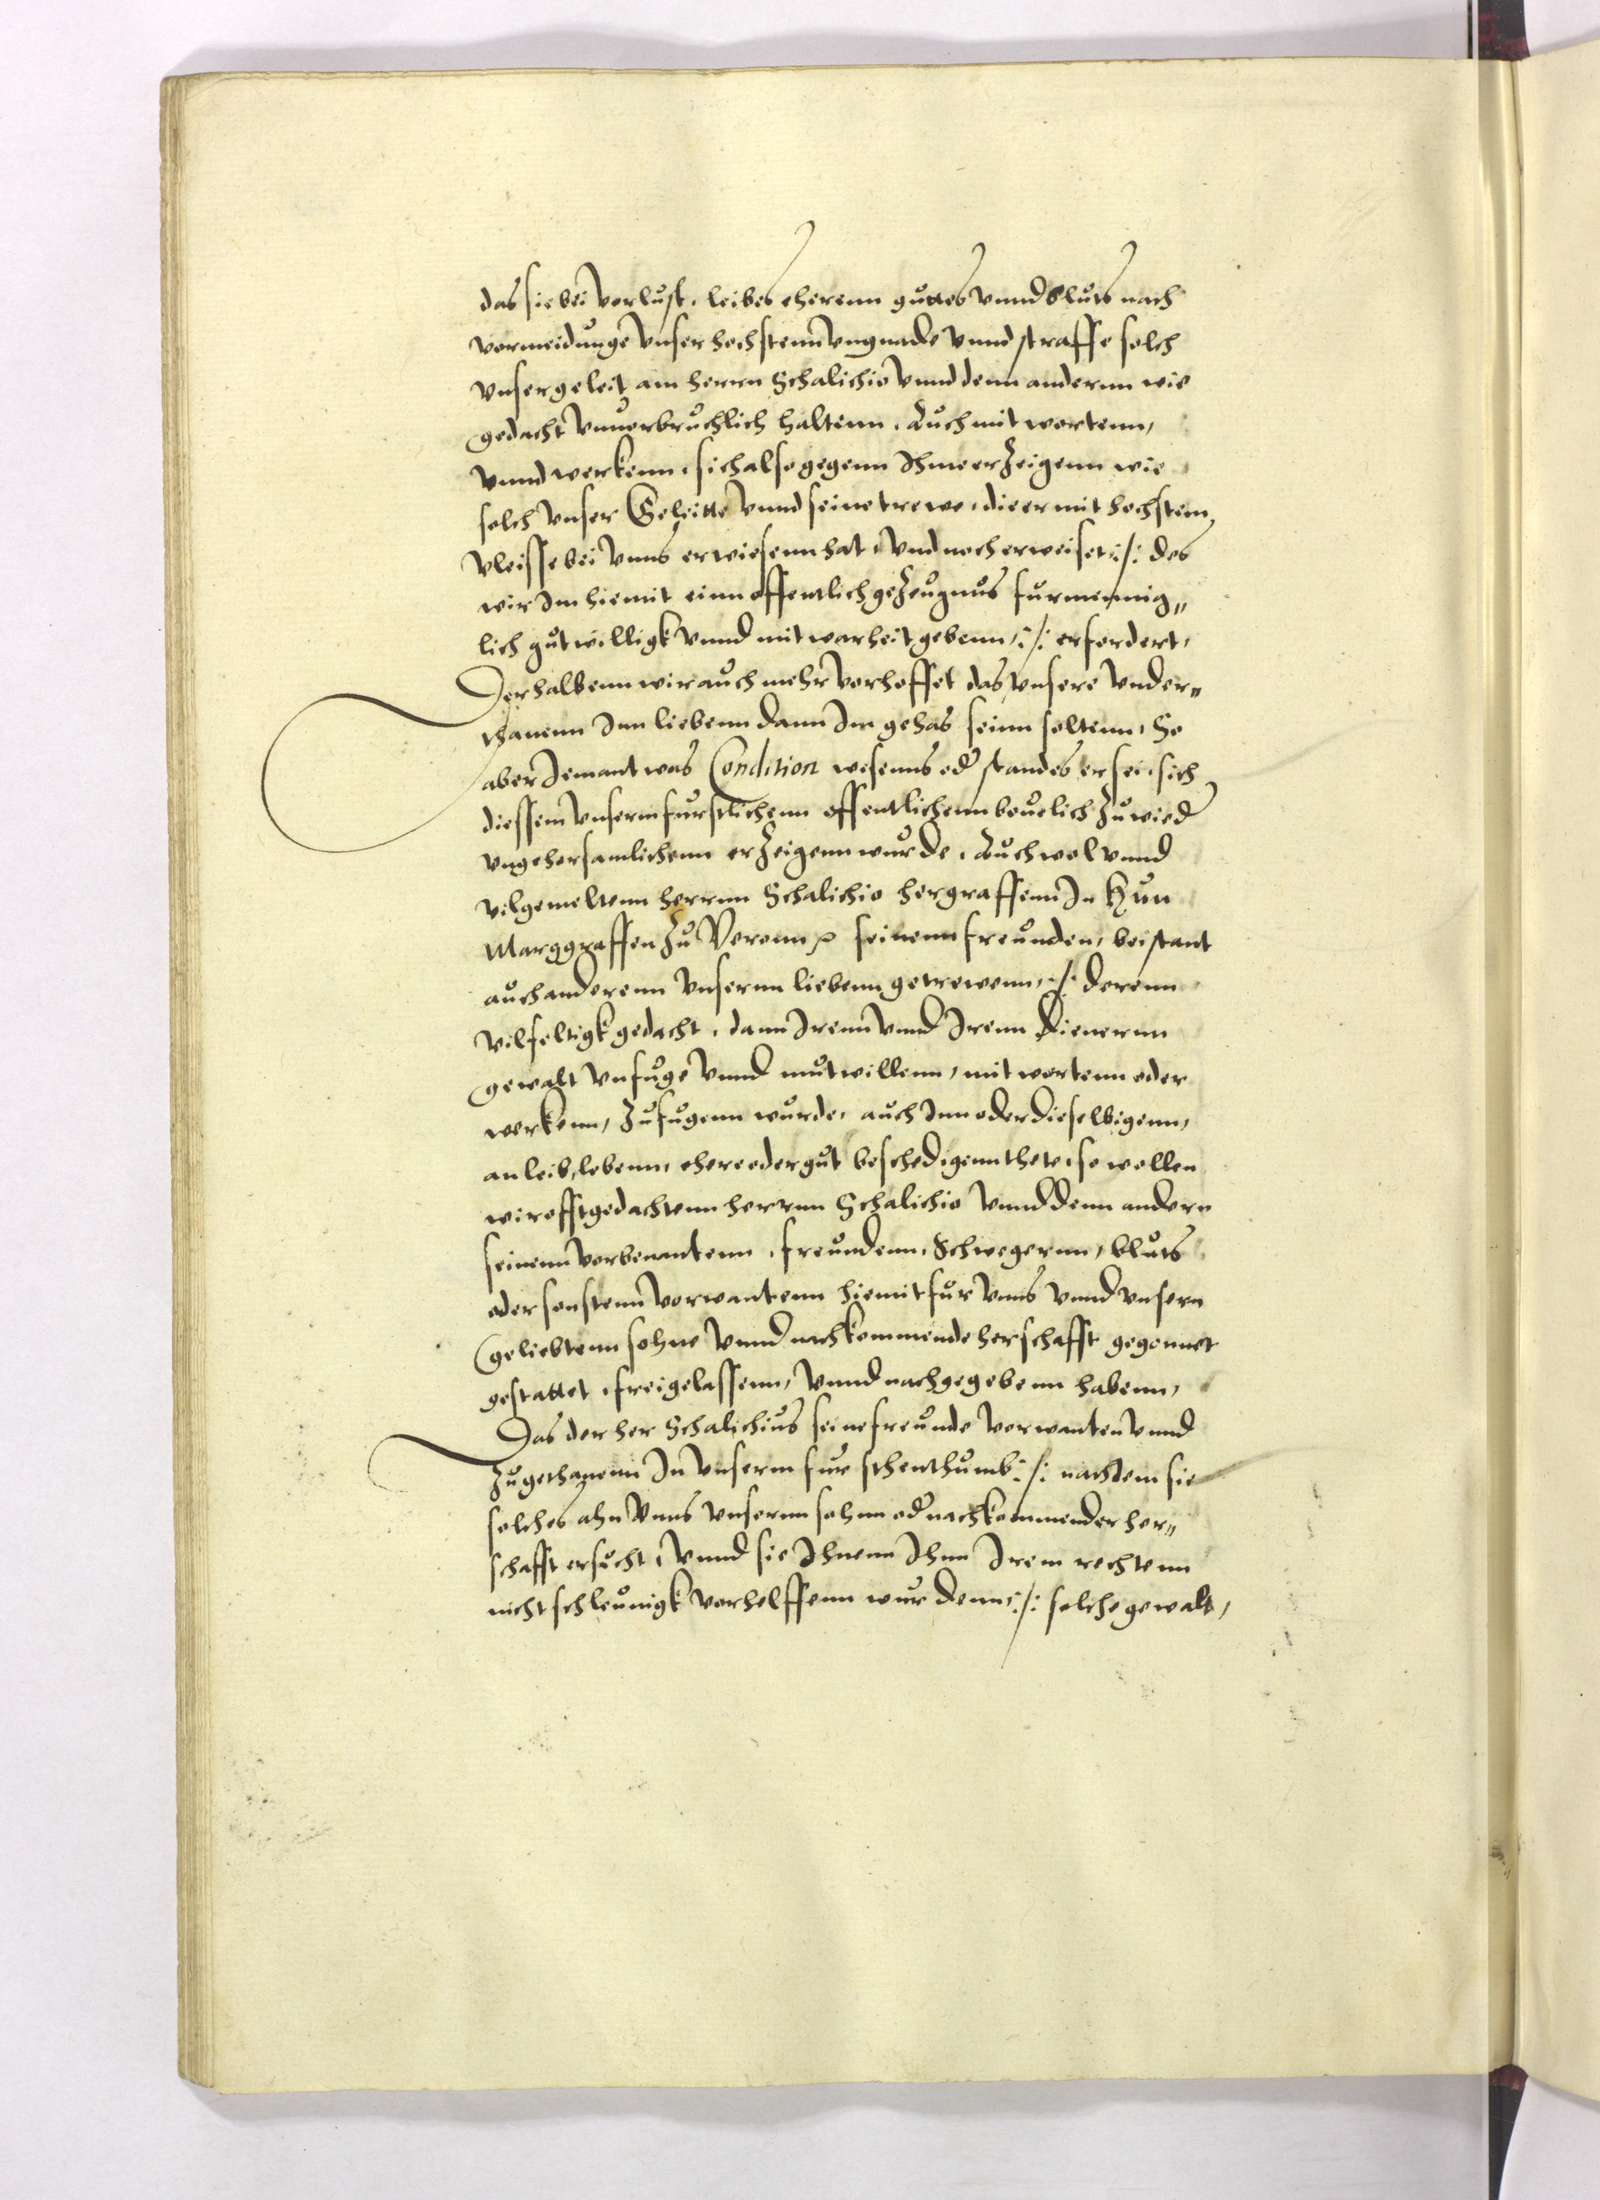 das sie bei vorlust, leibes eherenn guttes vnnd bluts nach
vormeidunge vnser hochstenn vngnade vnnd straffe solch
vnser geleit am herrn Schalichio vnnd denn andernn wie
gedacht vnuorbruchlich haltenn. Auch mit wortenn,
vnnd werkenn, sich also gegenn Ihme erzeigenn wie
solch vnser Geleitte vnnd seine trewe, die er mit hochstem
vleisse bei vnns erwiesenn hat, vnd noch erweiset :/: des
wir Im hiemit einn offentlich gezeugnus fur mennig„
lich gutwilligk vnnd mit warheit gebenn, :/: erfordert,
Derhalbenn wir auch mehr vorhoffet das vnsere vnder„
thanenn Inn liebenn dann Im gehas seinn soltenn, So
aber Iemant was Condition wesenns od standes er sei, sich
diessem vnserm furstlichenn offentlichenn beuelich zuwied
vngehorsamlichenn erzeigenn wurde, Auch wol vnnd
vilgemeltenn herrnn Schalichio hergraffenn In Hun
Marggraffen zu Veronn seinenn freunden, beistant
auch anderenn vnsernn liebenn getrewenn, :/: derenn
vilfeltigk gedacht, dann Irenn vnnd Irenn Dienernn
gewalt vnfuge vnnd mutwillenn, mit wortenn oder
werkenn, zufugenn wurde, auch Inn oder dieselbigenn,
an leib, lebenn, ehere oder gut beschedigenn thete, so wollen
wir offtgedachtenn herrnn Schalichio vnnd denn andern
seinenn vorbenantenn, freundenn, Schwegernn, bluts
oder sonstenn vorwantenn hiemit fur vnns vnnd vnsern
geliebtenn sohne vnnd nachkommende herschafft gegonnet
gestattet, freigelassenn, vnnd nachgegebenn habenn,
Das der her Schalichius seine freunde vorwanten vnnd
zugethanenn In vnserm furstenthumb :/: nachdem sie
solches ahn vnns vnsernn sohnn od nachkommender her„
schafft ersucht, vnnd sie Ihnenn Ihnn Irem rechtenn
nicht schleunigk vorhelffenn wurdenn, :/: solche gewalt,